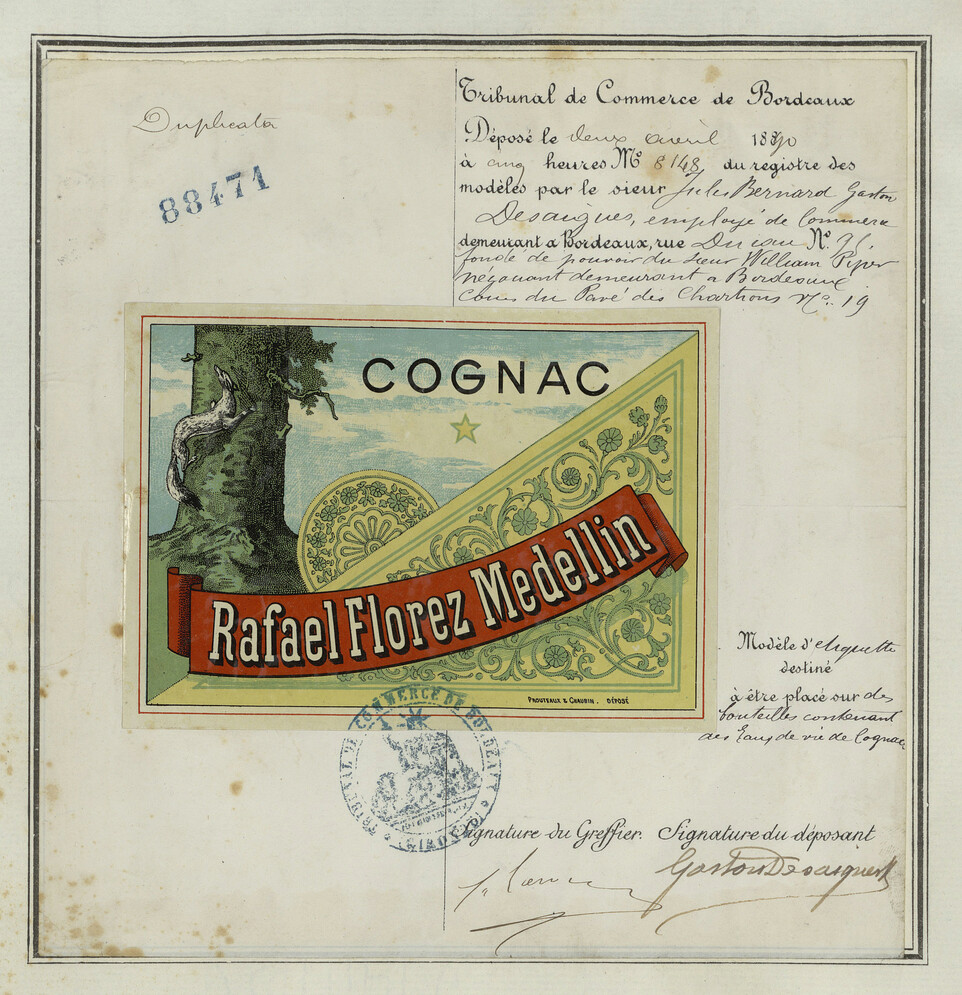 Duplicata
88471
Tribunal de Commerce de Bordeaux
Déposé le deux avril 1890
à cinq heures Nº 8148 du registre des
modèles par le sieur Jules Bernard Gaston
Desaigues, employé de Commerce
demeurant à Bordeaux, rue Nº
fondé de pouvoir du sieur William Piper
négociant demeurant à Bordeaux
Cours du Pavé des Chartrons Nº 19
COGNAC
Rafael Florez Medellin
PROUTEAUX & CHAUBIN. DÉPOSÉ
Modèle d'etiquette
destiné
à être placé sur des
bouteilles contenant
des Eaux de vie de Cognac
TRIBUNAL DE COMMERCE DE BORDEAUX
(GIRONDE)
Signature du Greffier. Signature du déposant
Gaston Desaigues